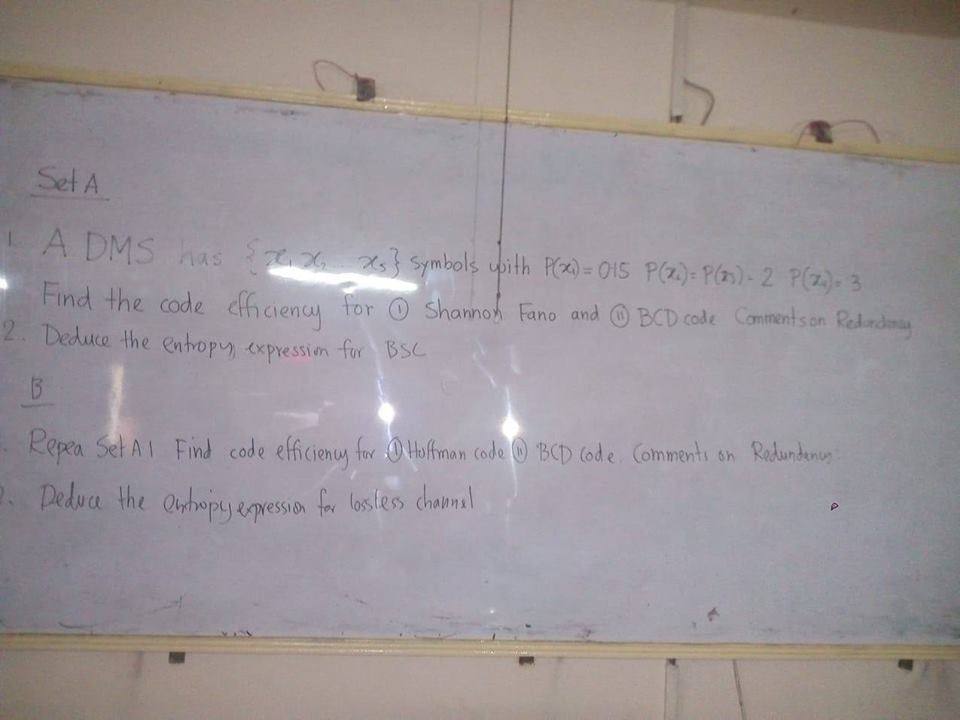 Set A
1. A DMS has {x₁ x₂ x₅} symbols with P(x₁) = 0.15 P(x₂) = P(x₃) = .2 P(x₄) = .3
Find the code efficiency for (i) Shannon Fano and (ii) BCD code Comments on Redundancy
2. Deduce the entropy expression for BSC
B
Repea Set A 1 Find code efficiency for (i) Hoffman code (ii) BCD code. Comments on Redundency
2. Deduce the entropy expression for lossless channel